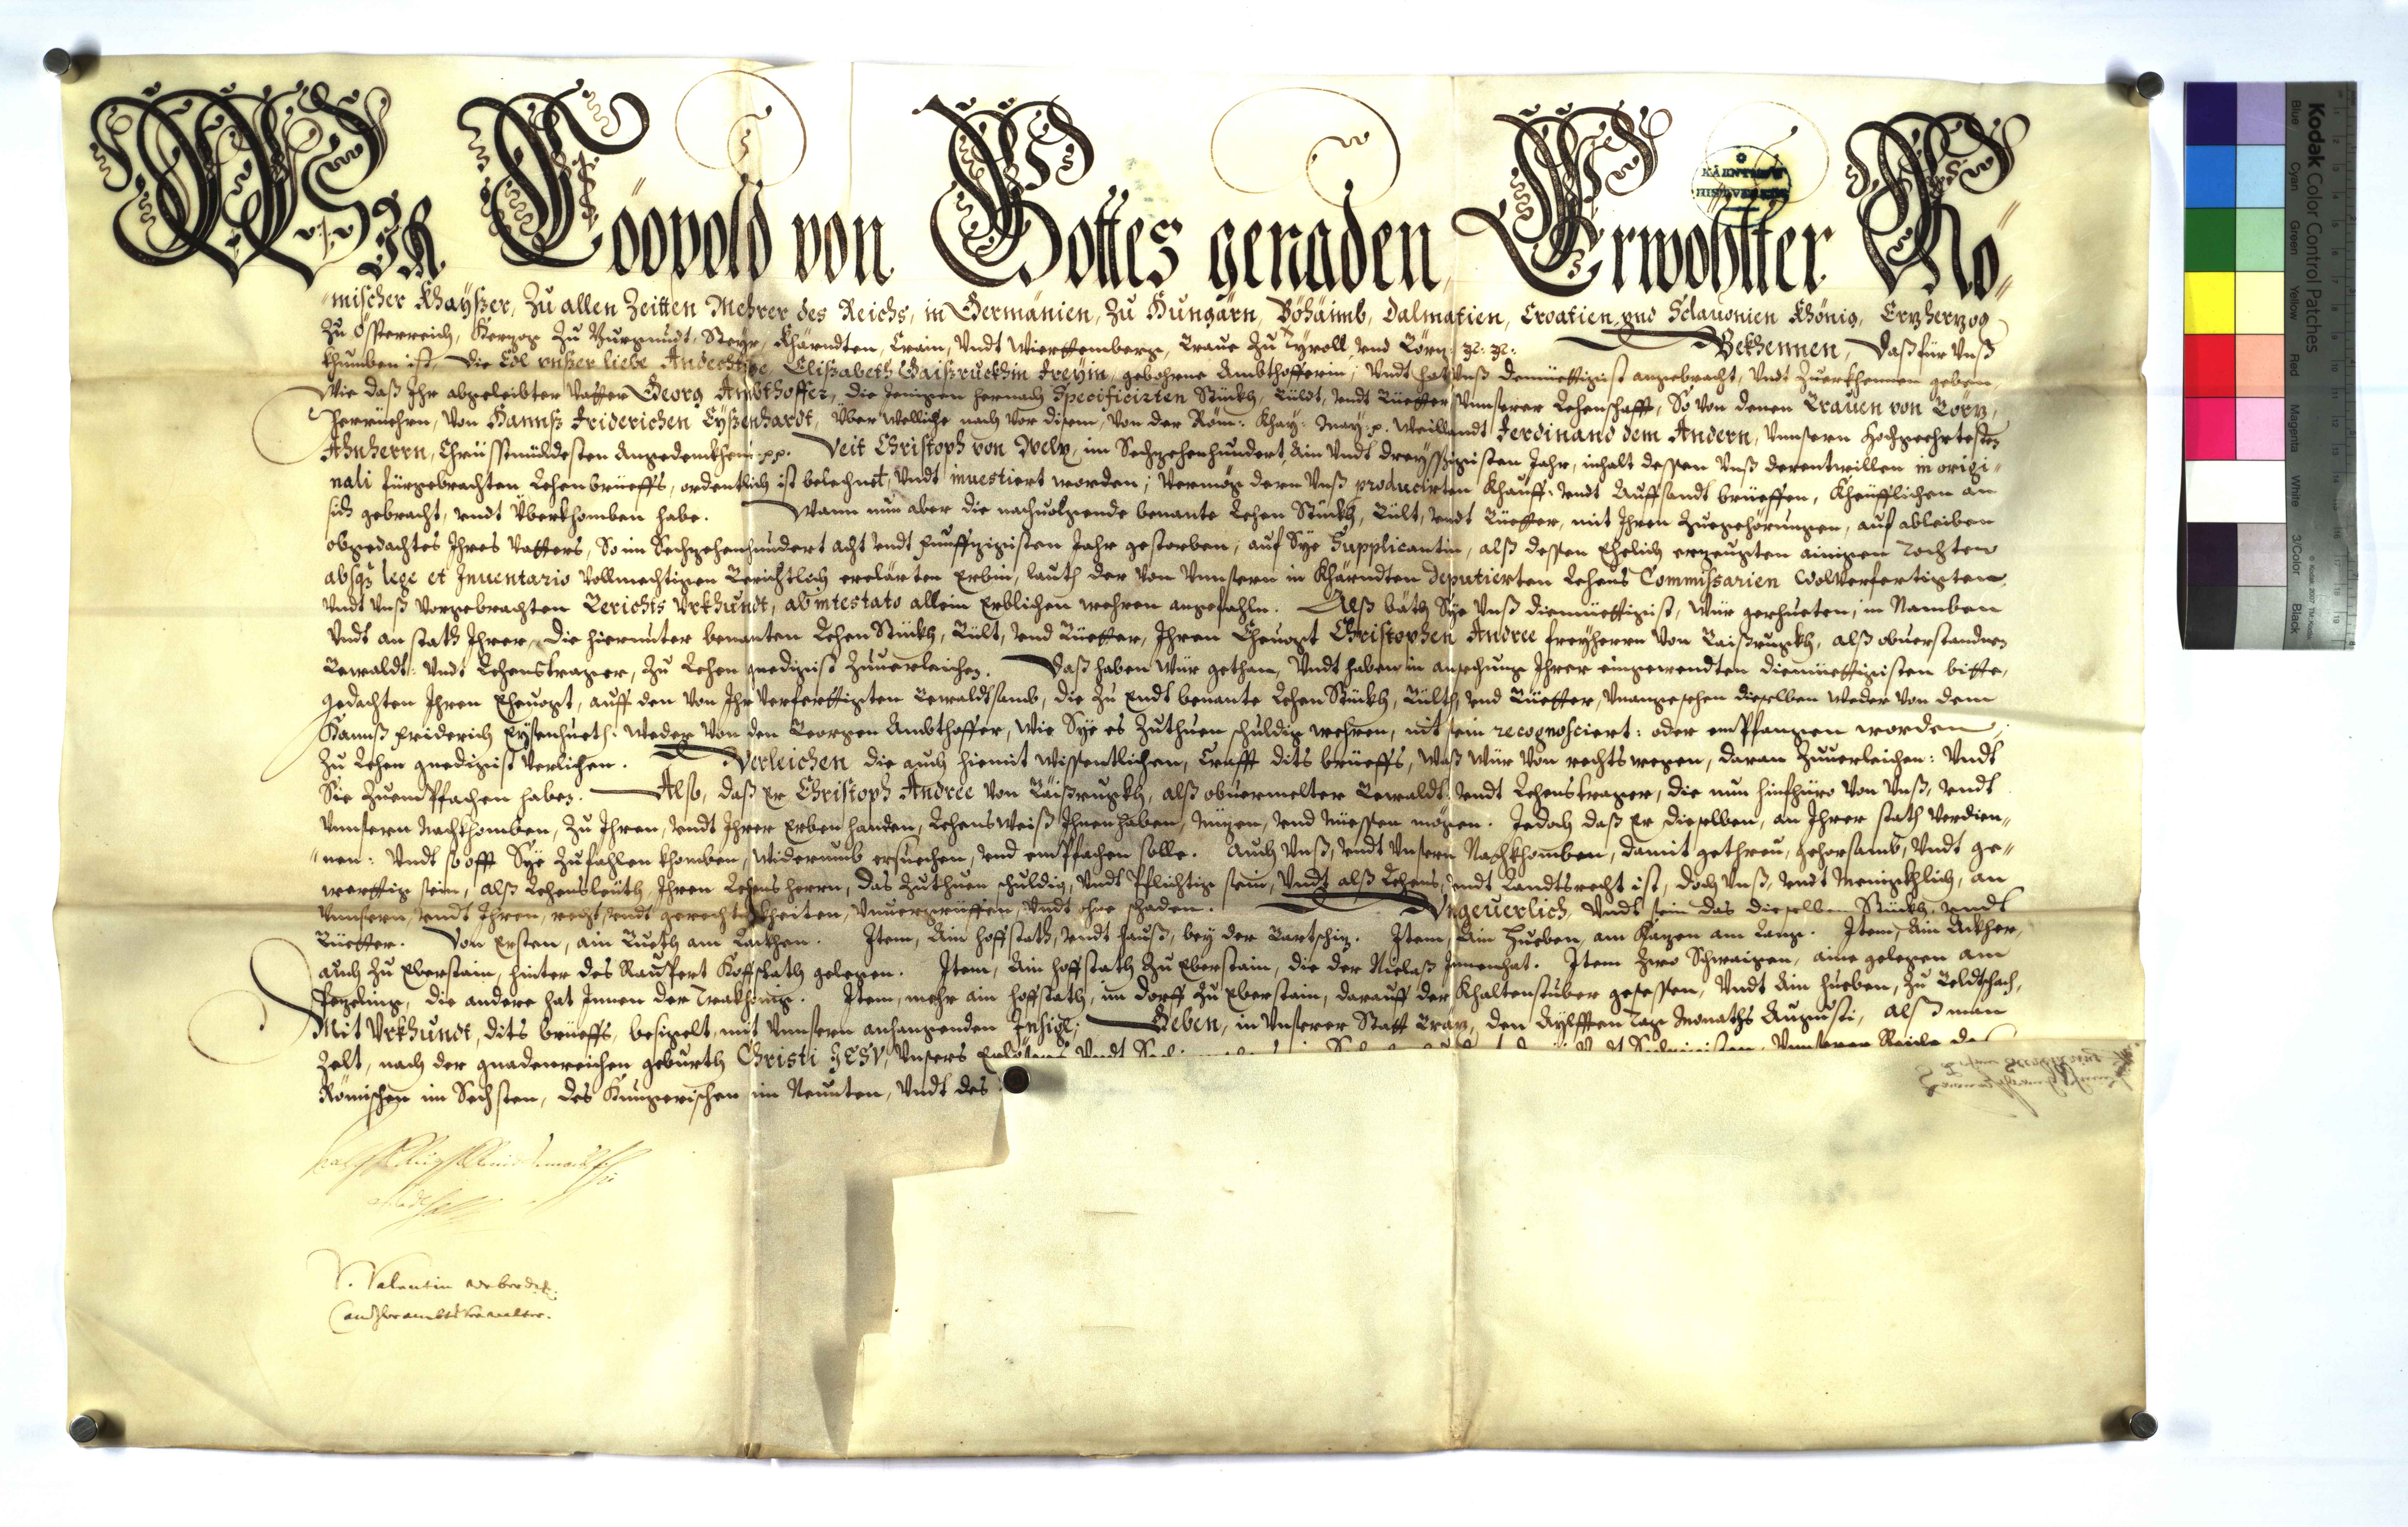 WIR Leopold von Gottes genaden, Erwöhlter Rö-
mischer Khayßer, Zu allen Zeitten Mehrer des Reichs, in Germanien, Zu Hungarn, Böhaimb, Dalmatien, Croatien, vnd Sclauonien Khönig, Erzherzog
Zu Össterreich, Herzog Zu Burgundt, Steyr, Khärndten, Crain, Vndt Wierttemberg, Graue Zu Tyroll, vnd Görz: Bekhennen, Daß für Vnß
khumben ist, die Edl vnßer liebe Andechtige, Elißabeth Gaißruckhin Freyin, gebohrne Ambthofferin, Vndt hat Vnß demüettigist angebracht, Vndt Zuerkhennen geben,
Wie daß Ihr abgeleibter Vatter Georg Ambthoffer, die Jenigen hernach Specificirten Stückh, Gült, vndt Güetter Vnnserer Lehenschafft, So von denen Grauen von Görz,
herrüehrn, Von Hannß Friderichen Eyßenhardt, Über Welliche nach vor disem, Von der Röm: Khay: May: p. Weillandt Ferdinand dem Andern, Vnnsern Hochgeehrtesten
Ahnherrn, Christmüldesten Angedenkhens pp. Veit Christoph von Welz, im Sechzehenhundert, Ain Vndt dreyssigisten Jahr, inhalt dessen Vnß derentwillen in origi-
nali fürgebrachten Lehenbrüeffs, ordentlich ist belechnet, Vndt inuestiert worden; Vermög deren Vnß producirten Khauff: vndt Auffsandt brüeffen, Kheüfflichen an
sich gebracht, vndt Überkhomben habe. Wann nun aber die nachuolgende benante Lehen Stückh, Gült, vndt Güetter, mit Ihren Zuegehörungen, auf ableiben
obgedachtes Ihres Vatters, So im Sechzehenhundert acht vndt Fünffzigisten Jahr gestorben, auf Sye Supplicantin, alß dessen Ehelich erzeugten ainigen Tochter
absq3 lege et Inuentario Vollmechtigen Gerichtlich erclärten Erbin, lauth der von Vnnsern in Khärndten deputierten Lehens Commissarien Wolverfertigten
Vndt Vnß Vorgebrachten Gerichts Vrkhundt, ab intestato allein Erblichen wehren angefahln. Alß bäth Sye Vnß diemüettigist, Wür geruheten, in Namben
Vndt an stath Ihrer, die hierunter benanten Lehen Stückh, Gült, vnd Güetter, Ihren Eheuogt Christophen Andree freyherrn Von Gaißrugkh, alß obuerstandnen
Gewaldt: Vndt Lehenstrager, Zu Lehen gnedigist Zuuerleichen. Daß haben Wür gethan, Vndt haben in ansechung Ihrer eingewendten diemüettigisten bitte,
gedachten Ihren Eheuogt, auff den Von Ihr Verferttigten Gewaldtsamb, die Zu Endt benante Lehen Stückh, Gülth, vnd Güetter, Vnangesehen dieselben weder von dem
Hannß Friderich Eyßenhueth: weder Von den Georgen Ambthoffer, Wie Sye es Zuthuen schuldig wehren, nit sein recognosciert: oder empfangen worden,
Zu Lehen gnedigist Verlichen. Verleichen die auch hiemit Wissentlichen, Crafft dits brüeffs, Waß Wür Von rechtswegen, daran Zuuerleichen: Vndt
Sie Zuempfachen haben. Also, daß Er Christoph Andree Von Gaißrugkh, alß obuermelter Gewaldt: vndt Lehenstrager, die nun hinfhüro Von Vnß, vndt
Vnnsern Nachkhomben, Zu Ihren, vndt Ihrer Erben handen, Lehensweiß Innenhaben, Nuzen, vnd Nüessen mögen. Jedoch daß Er dieselben, an Ihrer stath Verdien-
nen: Vndt so offt Sye Zufahlen khomben, Widerumb ersuechen, vnd empfachen solle. Auch Vnß, vndt Vnsern Nachkhomben, damit gethreu, gehorsamb, Vndt ge-
werttig sein, alß Lehensleüth, Ihren Lehens herrn, das Zuthuen schuldig, Vndt Pflichtig sein, Vndt alß Lehens, vndt Landtsrecht ist, doch Vnß, vndt Menigkhlich, an
Vnnsern, vndt Ihren, recht, vndt gerechtigkheiten, Vnuergrüffen, Vndt ohne schaden. Vngeuerlich, Vndt sein das dieselben Stückh, vndt
Güetter. Von Ersten, ain Gueth am Lackhen. Item, Ain hoffstath, vndt hauß, bey der Gartschiz. Item, Ain Hueben, am Hagen am Lang. Item, Ain Ackher,
auch Zu Eberstain, hinter des Raupert Hoffstath gelegen. Item, Ain hoffstath Zu Eberstain, die der Niclaß Innenhat. Item Zwo Schwaigen, aine gelegen am
die andere hat Innen der Item, mehr ain hoffstath, im dorff Zu Eberstain, darauff der Khaltenstuber gesessen, Vndt Ain hueben, Zu
Mit Vrkhundt, dits brüeffs, besigelt, mit Vnnsern anhangenden Insigl; Geben, in Vnserer Statt Graz, den Aylfften Tag Monaths Augusti, Alß man
Zelt, nach der gnadenreichen geburth Christi JESV, Vnsers Erlösers Vnnserer Reiche des
Römischen im Sechsten, des Hungerischen im Neunten, Vndt des
V. Valentin
KÄRNTNER